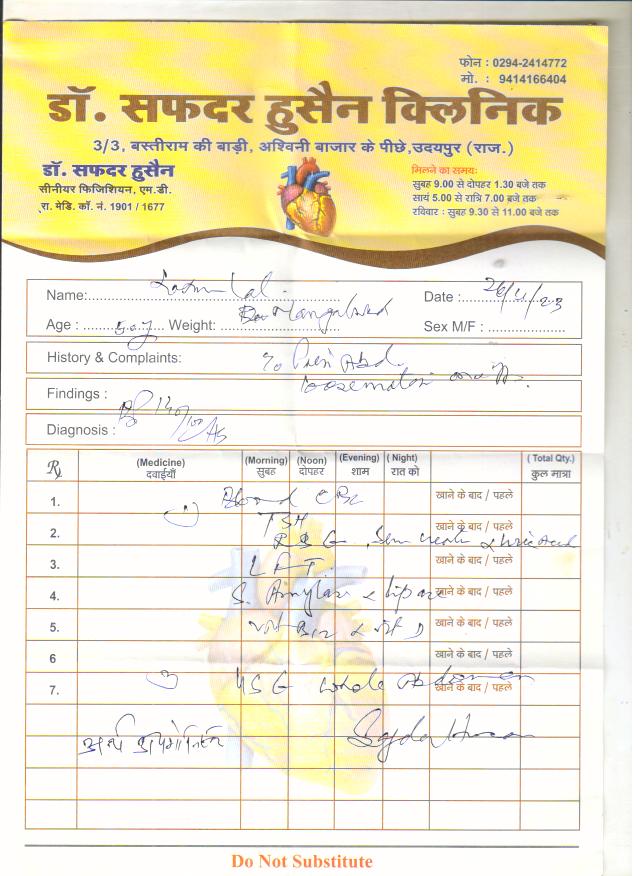 फोन : 0294-2414772
मो. : 9414166404
डॉ. सफदर हुसैन क्लिनिक
3/3, बस्तीराम की बाड़ी, अश्विनी बाजार के पीछे,उदयपुर (राज.)
डॉ. सफदर हुसैन
सीनीयर फिजिशियन, एम.डी.
रा. मेडि. कॉ. नं. 1901 / 1677
मिलने का समय:
सुबह 9.00 से दोपहर 1.30 बजे तक
सायं 5.00 से रात्रि 7.00 बजे तक
रविवार : सुबह 9.30 से 11.00 बजे तक
Name: Lal Date : 26/11/23
Age : 50 y Weight: Sex M/F :
History & Complaints: Pain Abd.
Findings : BP 140/100
Diagnosis :
Rx (Medicine) (Morning) (Noon) (Evening) (Night) (Total Qty.)
दवाईयाँ सुबह दोपहर शाम रात को कुल मात्रा
1. Blood CBC खाने के बाद / पहले
TSH
2. Serum Urea & Uric Acid खाने के बाद / पहले
3. LFT खाने के बाद / पहले
4. S. Amylase & Lipase खाने के बाद / पहले
5. Vit B12 & Vit D खाने के बाद / पहले
6 खाने के बाद / पहले
7. USG whole Abdomen खाने के बाद / पहले
Do Not Substitute